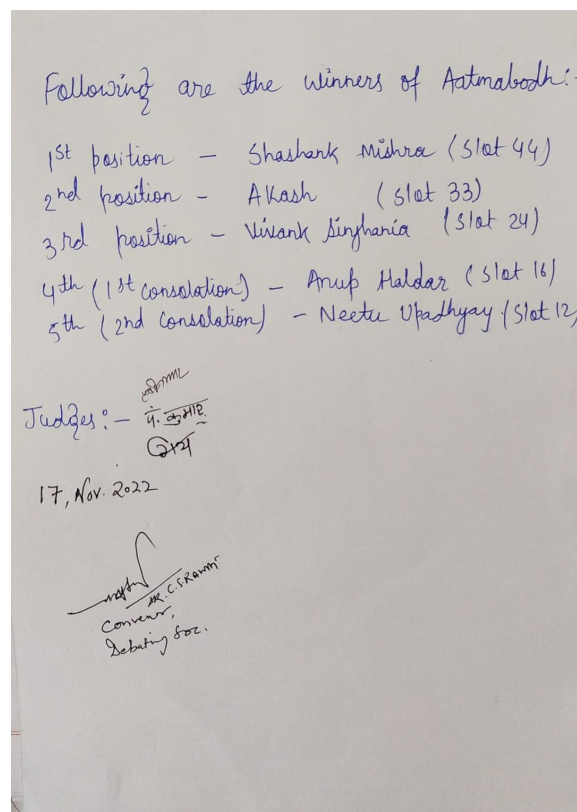 Following are the winners of Aatmabodh:-
1st position - Shashank Mishra (Slot 44)
2nd position - Akash (Slot 33)
3rd position - Vivank Singhania (Slot 24)
4th (1st consolation) - Anup Haldar (Slot 16)
5th (2nd consolation) - Neetu Upadhyay (Slot 12)
Judges:-
पं. कुमार
17, Nov. 2022
Convenor,
Debating Soc.